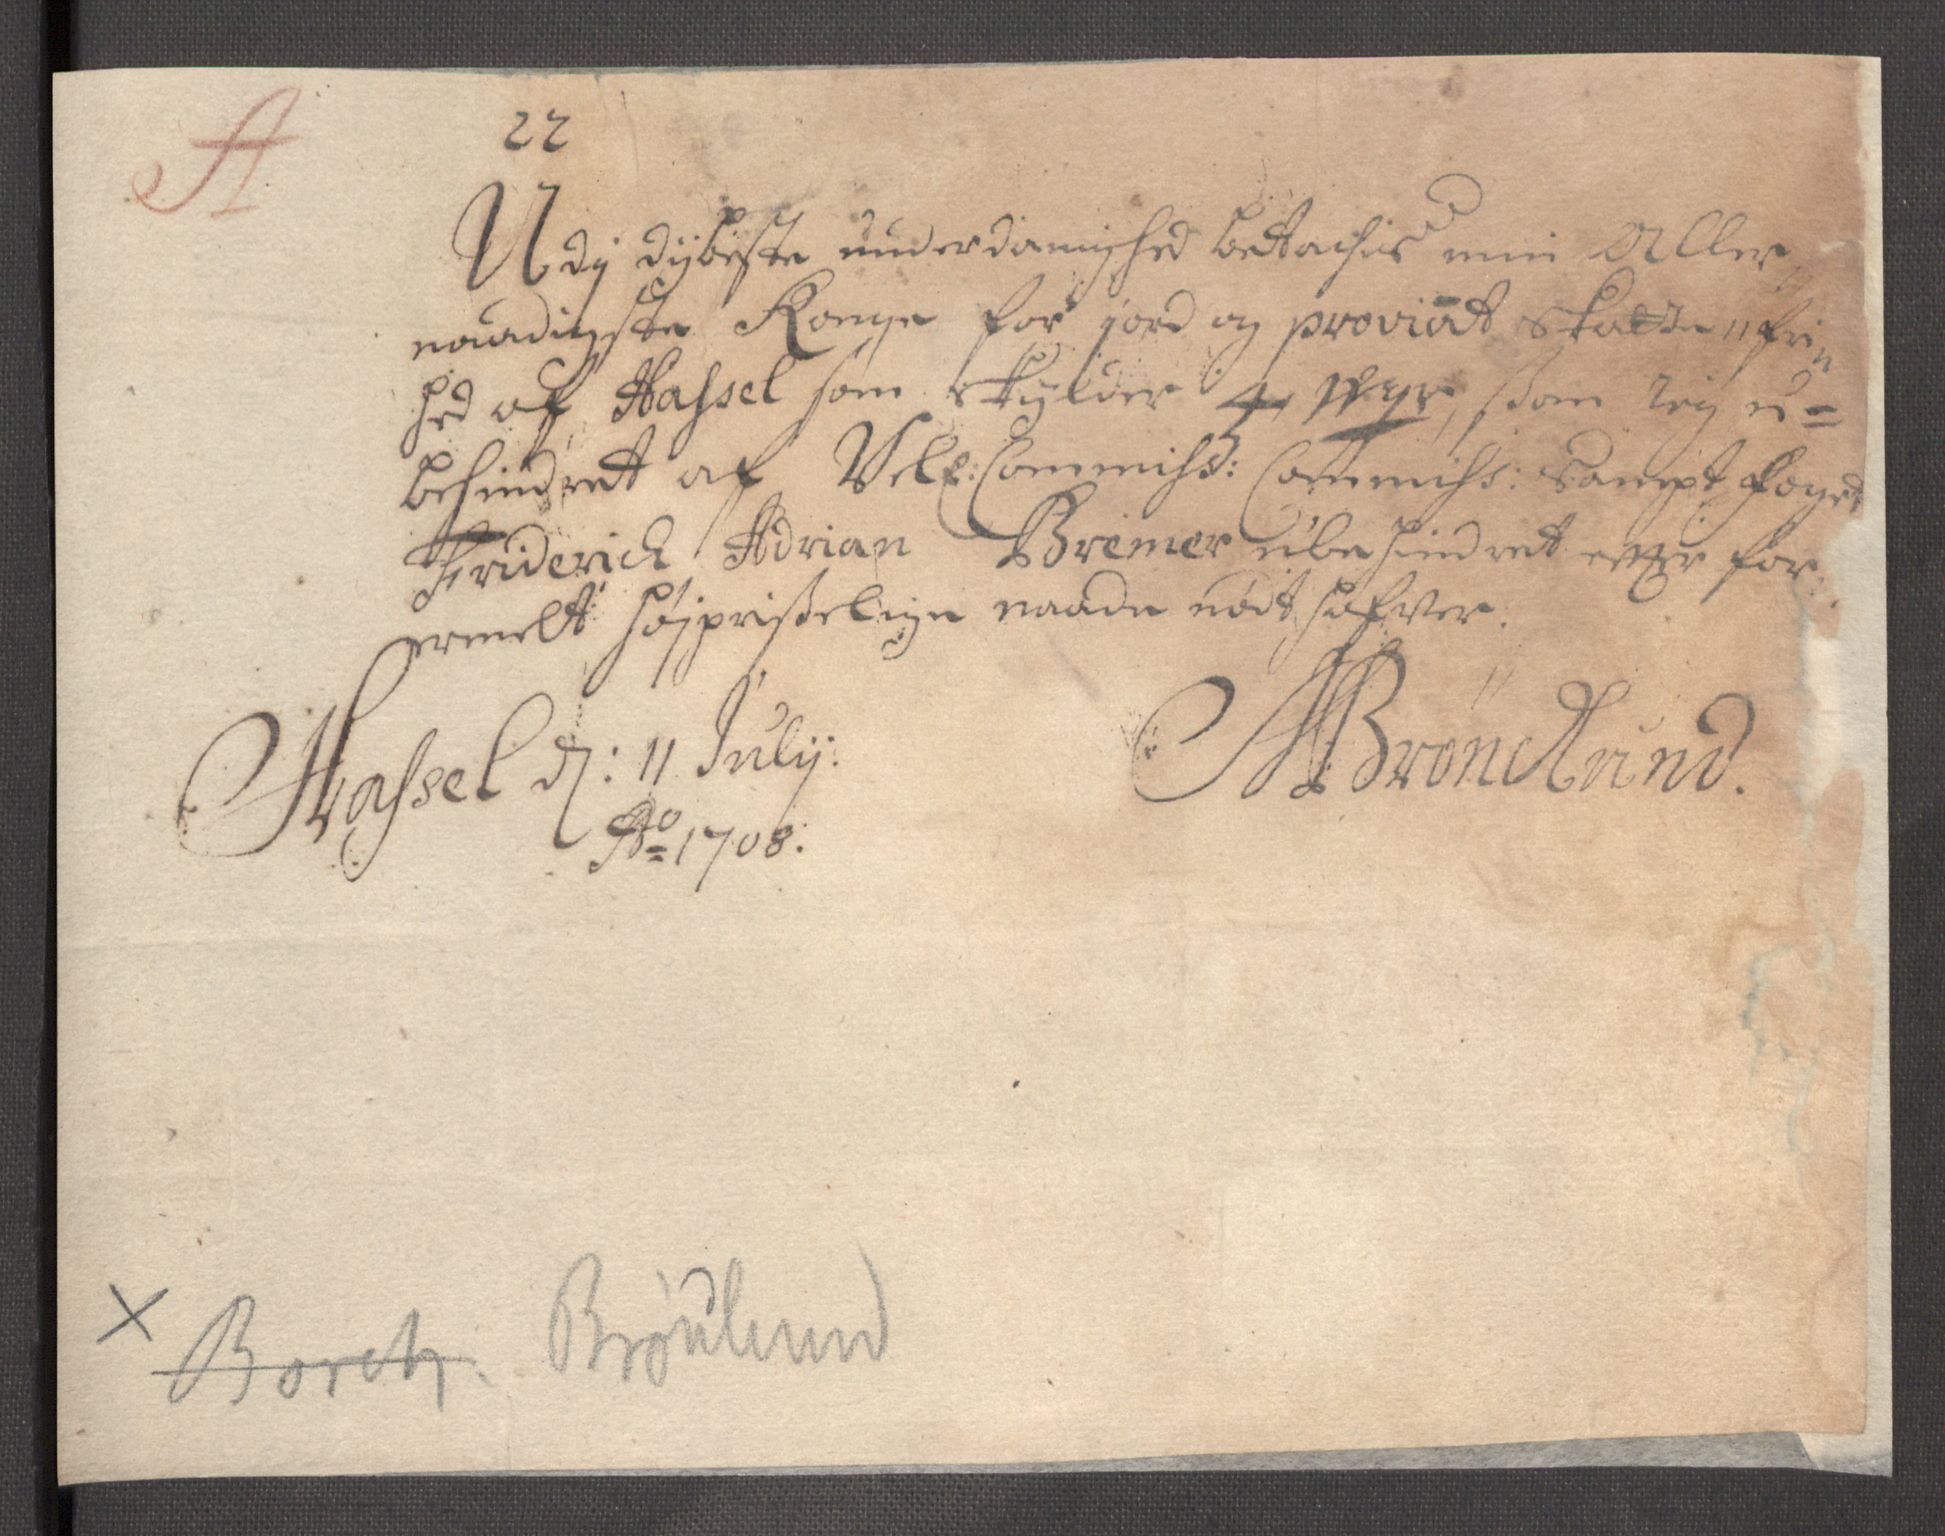 A
22
Udj dijbeste underdanighed betachis min Aller
naadigste Konge for jord og proviāt skatte frj
hed af Hassel som skylder 4 span leg u=
behindret af Vel E: Commiss: Commiss: sampt foget
Friderich Adrian Bremer ubehindret efter for
ermelt højprisselige naade nødt hafver.
Hassel d: 11 Julij:
Ao 1708.
Brönlund.
x Borch. Brønlund